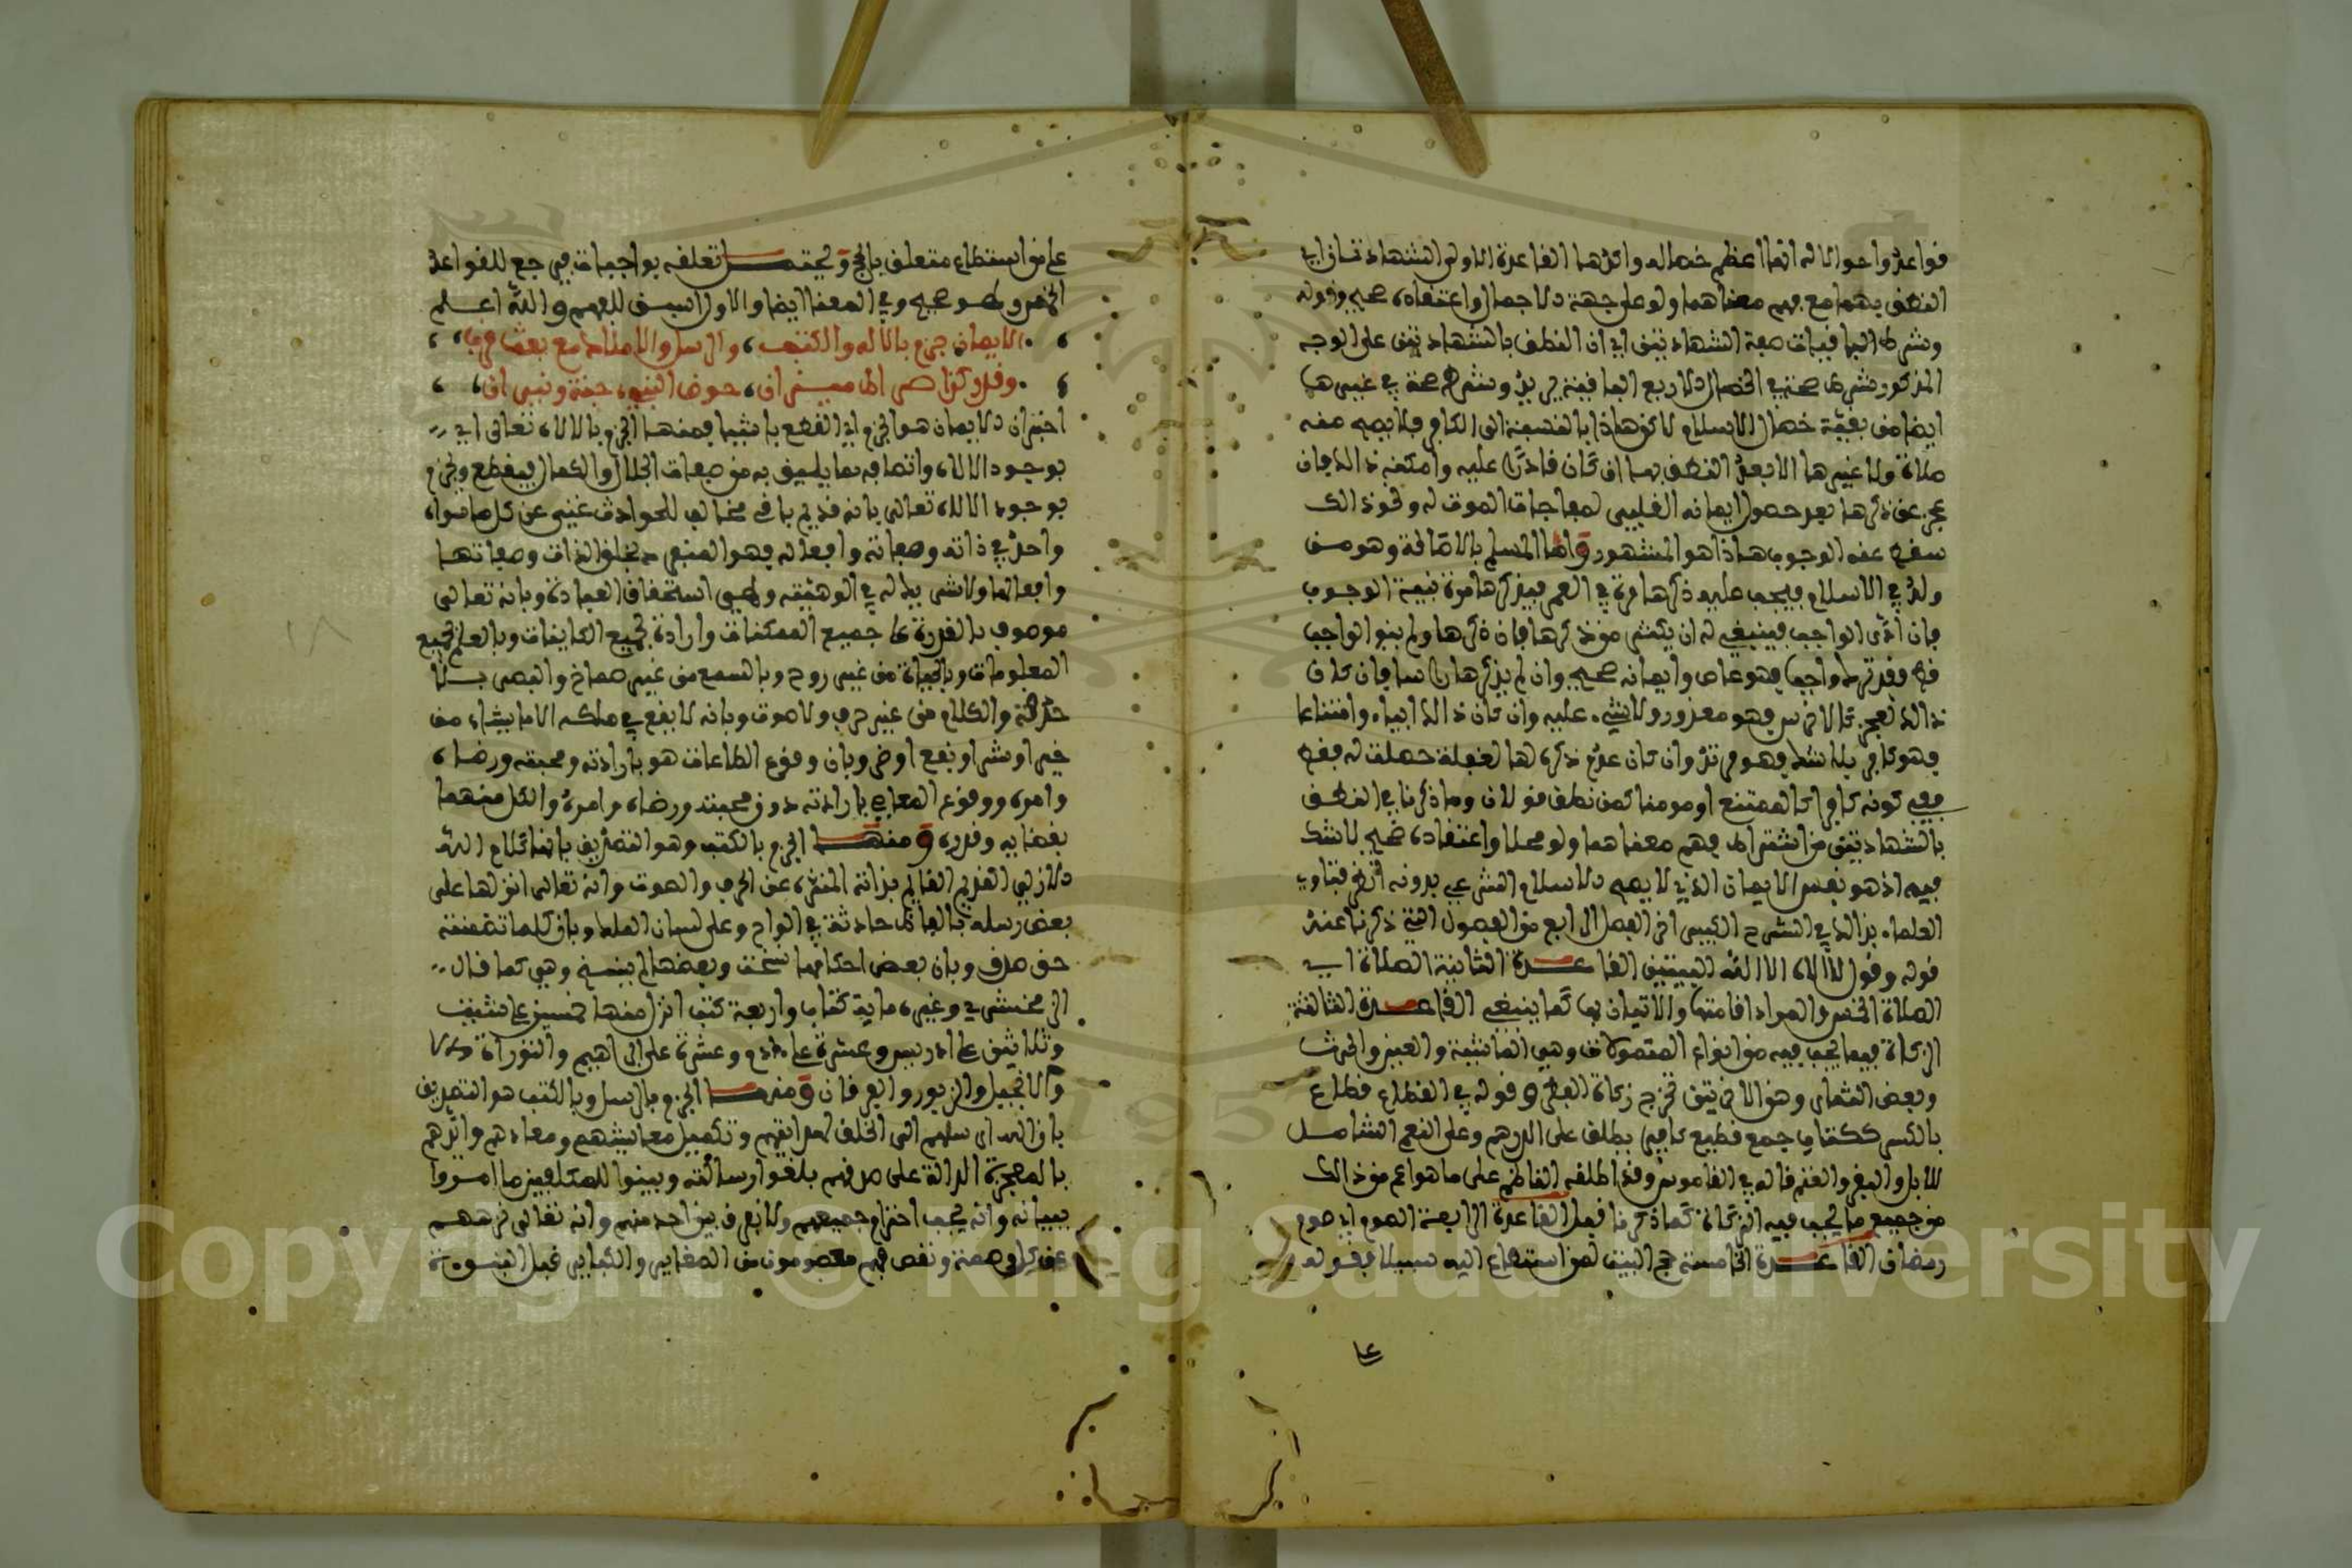 قواعد واحوالا له انها اعظم خصاله واكدها القاعدة الاولى الشهادتان اي
النطق بهما مع فهم معناهما ولو على جهة الاجمال واعتقاده صحيح وقوله
وشرط الباقيات صحة الشهادتين اي ان النطق بالشهادتين على الوجه
المذكور شرط صحة في الخصال الاربع الباقية يريد وشرط صحة في غيرها
ايضا من بقية خصال الاسلام لا كن هاذا بالنسبة الى الكافر فلا يصح منه
صلاة ولا غيرها الا بعد النطق بهما ان كان قادرا عليه وامكنه ذالك فان
عجز عن ذكرها بعد حصول ايمانه القلبي لمفاجات الموت له ونحو ذالك
سقط عنه الوجوب هاذا هو المشهور واما المسلم بالاصالة وهو من
ولد في الاسلام فيجب عليه ذكرها مرة في العمر فيذكرها مرة بنية الوجوب
فان ادى الواجب فينبغي له ان يكثر من ذكرها فان ذكرها ولم ينو الواجب
فقد ترك واجبا فهو عاص وايمانه صحيح وان لم يذكرها راسا فان كان
ذالك لعجز كالاخرس فهو معذور ولا شيء عليه وان كان ذالك اباء وامتناعا
فهو كافر بلا شك فهو مرتد وان كان عدم ذكره لها لغفلة حصلت له ففي
كونه كافرا كالممتنع او مومنا كمن نطق قولان وما ذكرنا في النطق
بالشهادتين من اشتراط فهم معناهما ولو مجملا واعتقاده صحيح لا شك
فيه اذ هو نفس الايمان الذي لا يصح الاسلام الشرعي بدونه انظر فتاوي
العلماء بذالك في الشرح الكبير اخر الفصل الرابع من الفصول التي ذكرنا عند
قوله وقول لا اله الا الله البيتين القاعدة الثانية الصلاة اي
الصلاة الخمس والمراد اقامتها والاتيان بها كما ينبغي القاعدة الثالثة
الزكاة فيما يجب فيه من انواع المتمولات وهي الماشية والعين والحرث
وبعض الثمار وهو الاخرين تخرج زكاة الفطر وقوله في القطاع قطاع
بالكسر ككتاب جمع قطيع كامير يطلق على الدرهم وعلى النعم الشامل
للابل والبقر والغنم قاله في القاموس وقد اطلقه الناظم على ما هو اعم من ذالك
من جميع ما يجب فيه الزكاة كما ذكرنا قبل القاعدة الرابعة الصوم اي صوم
رمضان القاعدة الخامسة حج البيت لمن استطاع اليه سبيلا فقوله
على
على من استطاع متعلق بالحج ويحتمل تعلقه بواجبات فيرجع للقواعد
الخمس وهو صحيح وفي المعنى ايضا والاول اسبق للفهم والله اعلم
الايمان جزم بالاله والكتب، والرسل والاملاك مع بعث قرب،
وقدر كذا صراط ميزان، حوض النبي، جنة ونيران،
اخبر ان الايمان هو الجزم اي القطع باشيا فمنها الجزم بالاله تعالى اي
بوجود الاله واتصافه بما يليق به من صفات الجلال والكمال فيقطع ويجزم
بوجود الاله تعالى بانه قديم باق مخالف للحوادث غني عن كل ما سواه
واحد في ذاته وصفاته وافعاله فهو المنفرد بخلق الذات وصفاتها
وافعالها ولا شريك له في الوهيته وهي استحقاق العبادة وبانه تعالى
موصوف بالقدرة على جميع الممكنات وارادة لجميع الكاينات وبالعلم بجميع
المعلومات وبالحياة من غير روح وبالسمع من غير صماخ والبصر بلا
حدقة والكلام من غير حرف ولا صوت وبانه لا يقع في ملكه الا ما يشاء من
خير او شر او نفع او ضر وبان وقوع الطاعات هو بارادته ومحبته ورضاه
وامره ووقوع المعاصي بارادته دون محبته ورضاه وامره والكل منهما
بقضايه وقدره ومنها الجزم بالكتب وهو التصديق بانها كلام الله
الازلي القديم القايم بذاته المنزه عن الحرف والصوت وانه تعالى انزلها على
بعض رسله بالفاظ حادثة في الواح وعلى لسان الملك وبان كلما تضمنته
حق صدق وبان بعض احكامها نسخت وبعضها لم ينسخ وهي كما قال
الزمخشري وغيره ماية كتاب واربعة كتب انزل منها خمسين على شيث
وثلاثين على ادريس وعشرة على ءادم وعشرة على ابراهيم والتوراة
والانجيل والزبور والفرقان ومنها الجزم بالرسل وبالكتب هو التصديق
بان الله ارسلهم الى الخلق لهدايتهم وتكميل معايشهم ومعادهم وايدهم
بالمعجزة الدالة على صدقهم بلغوا رسالته وبينوا للمكلفين ما امروا
ببيانه وانه يجب احترام جميعهم ولا نفرق بين احد منهم وانه تعالى نزههم
عن كل وصمة ونقص فهم معصومون من الصغاير والكباير قبل النبوءة
Copyright © King Saud University
1957